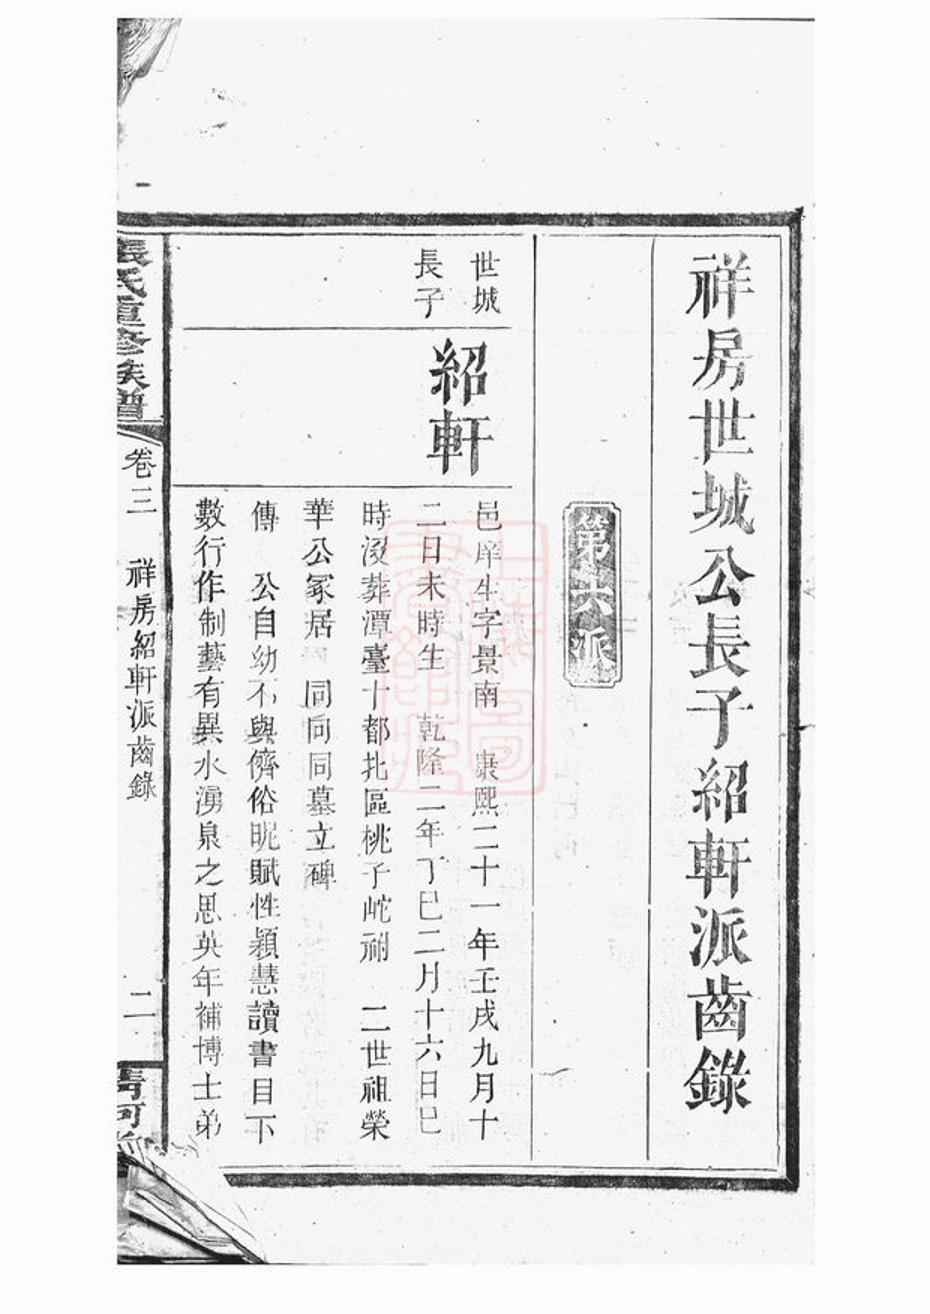 祥房世城公長子紹軒派齒錄
第十六派
世城
長子
紹軒
邑庠生字景南 康熙二十一年壬戌九月十
二日未時生 乾隆二年丁巳二月十六日巳
時沒葬潭臺十都北區桃子岮祔 二世祖榮
華公冢居 同向同墓立碑
傳 公自幼不與儕俗昵賦性穎慧讀書目下
數行作制藝有異水湧泉之思英年補博士弟
張氏重修族譜
卷三
祥房紹軒派齒錄
二
清河堂